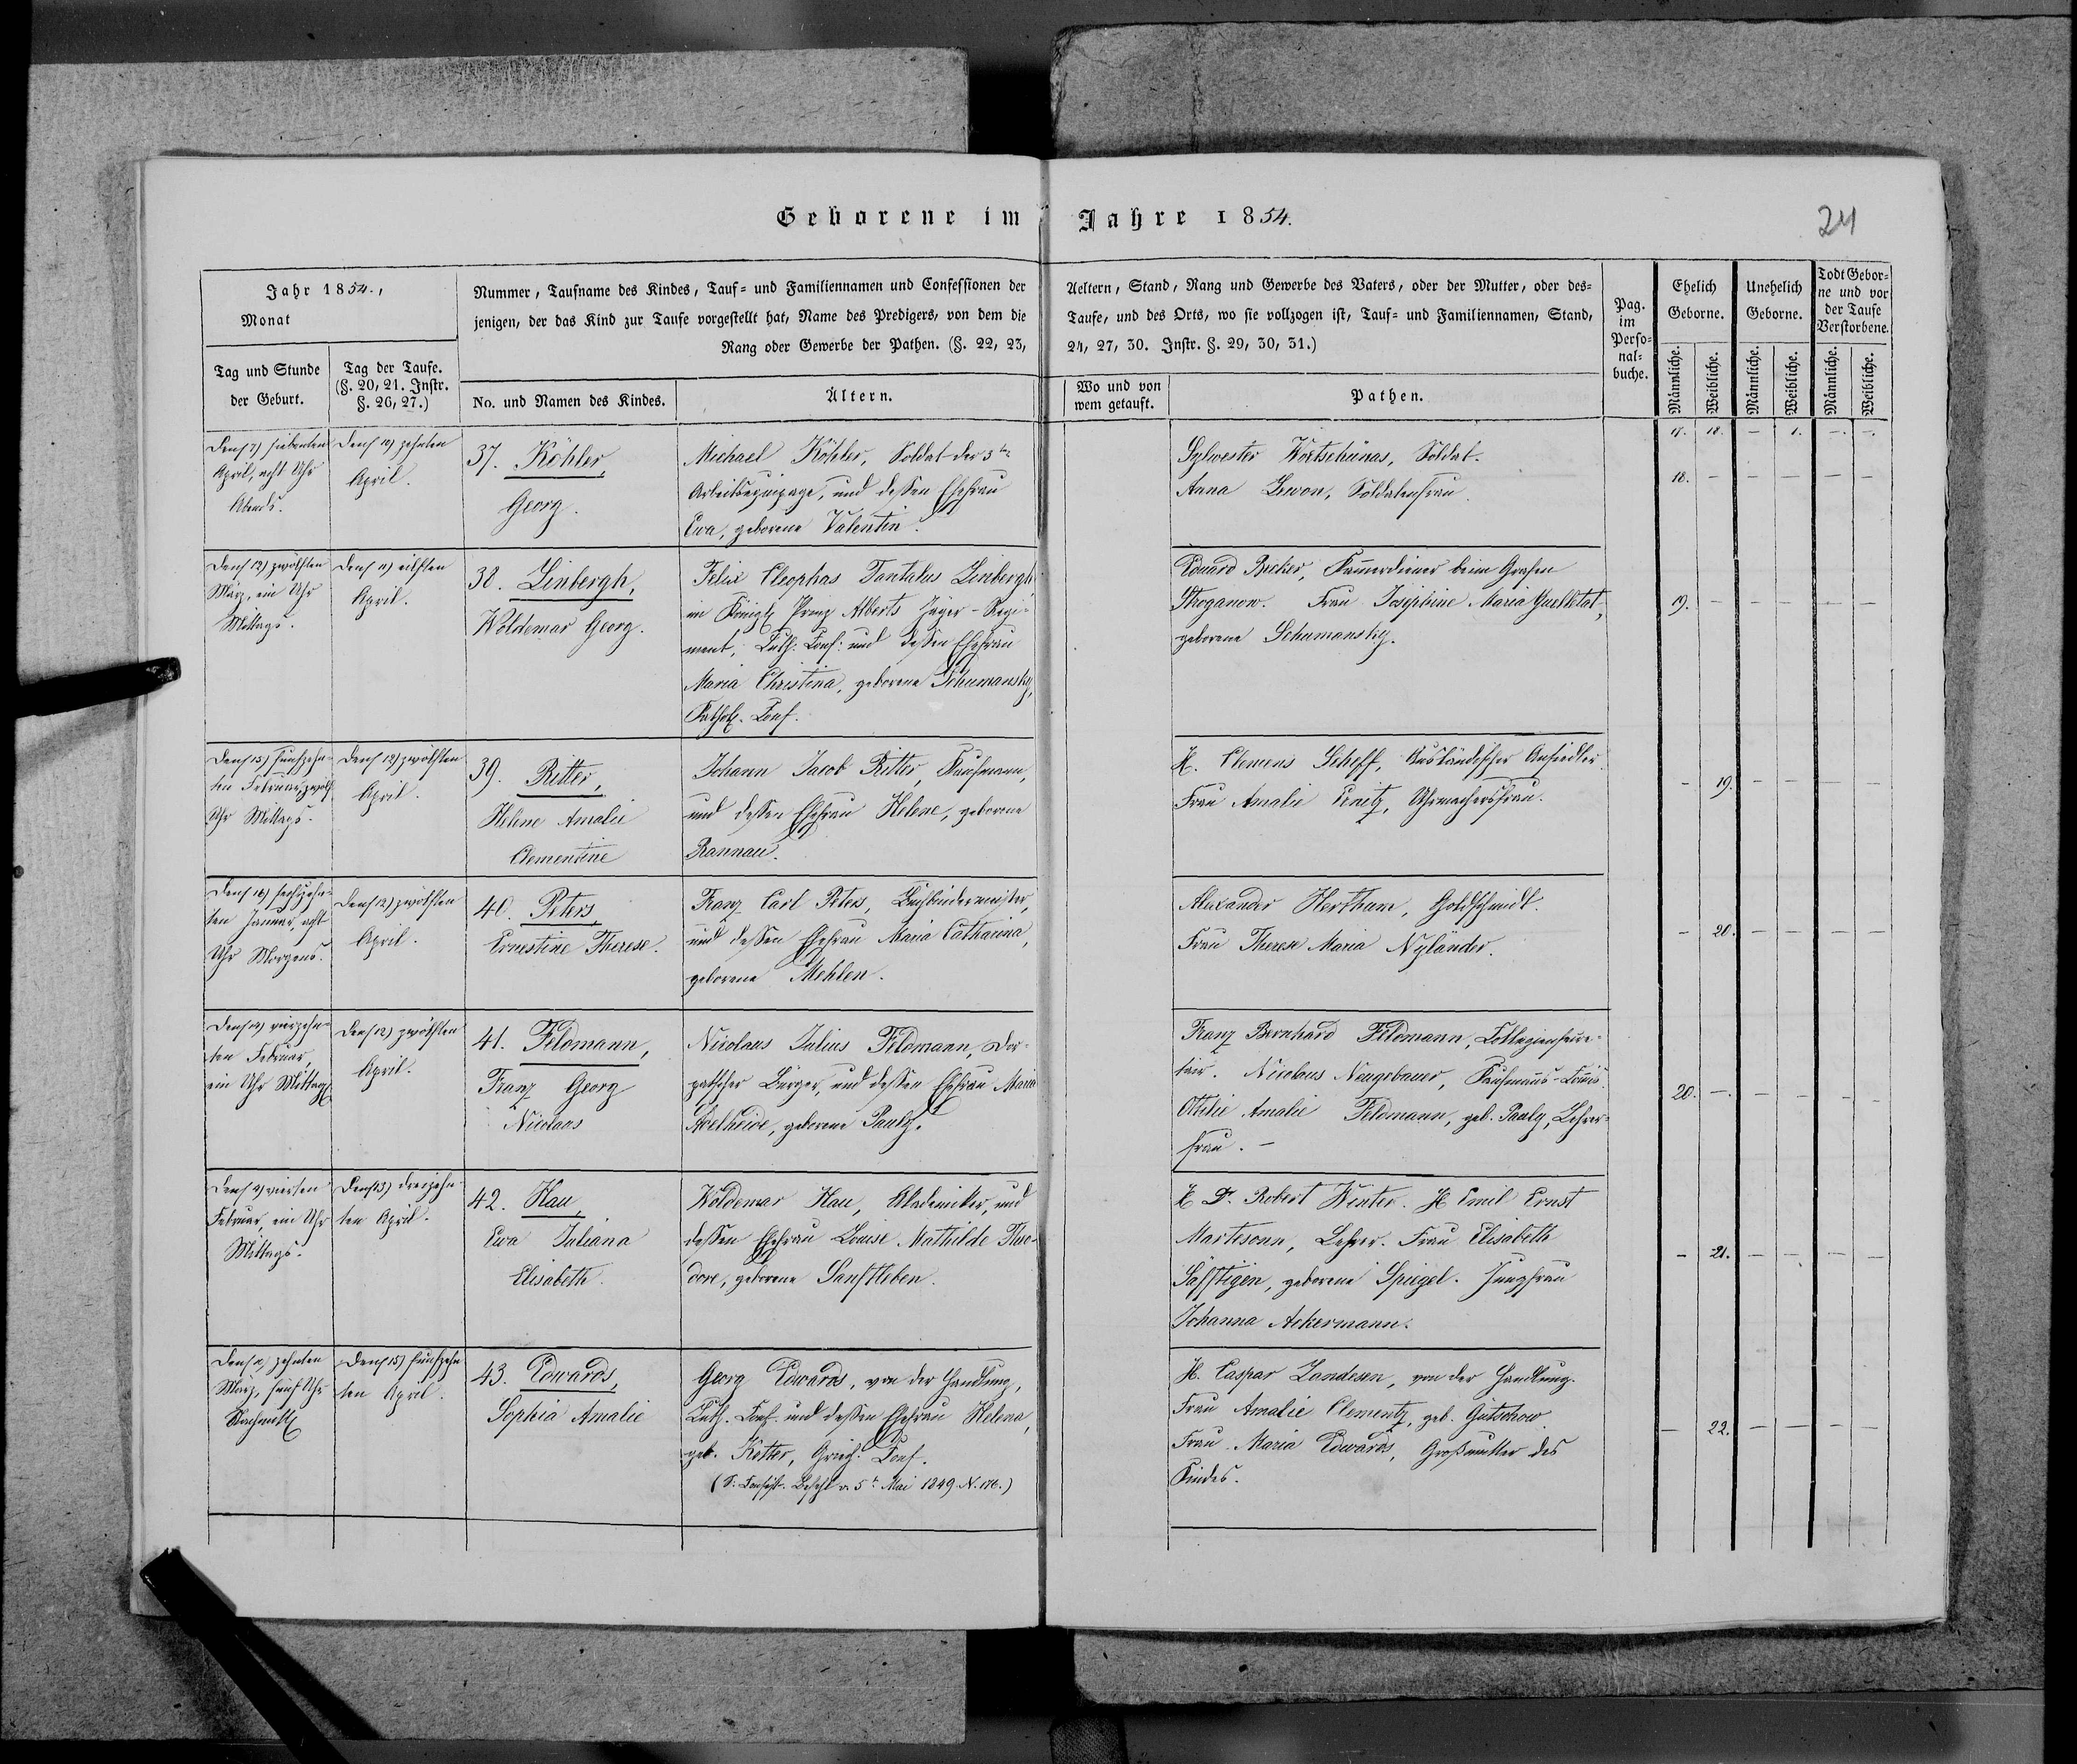 Geborene im Jahre 1854.
24
Jahr 1854.,
Monat
Tag und Stunde
der Geburt.
Tag der Taufe.
(§. 20, 21. Instr.
§. 26, 27.)
Nummer, Taufname des Kindes, Tauf- und Familiennamen und Confessionen der
jenigen, der das Kind zur Taufe vorgestellt hat, Name des Predigers, von dem die
Rang oder Gewerbe der Pathen. (§. 22, 23,
No. und Namen des Kindes.
Ältern.
Aeltern, Stand, Rang und Gewerbe des Vaters, oder der Mutter, oder des-
Taufe, und des Orts, wo sie vollzogen ist, Tauf- und Familiennamen, Stand,
24, 27, 30. Instr. §. 29, 30, 31.)
Wo und von
wem getauft.
Pathen.
Pag.
im
Perso-
nal-
buche.
Ehelich
Geborne.
Unehelich
Geborne.
Todt Gebor-
ne und vor
der Taufe
Verstorbene.
Männliche.
Weibliche.
Männliche.
Weibliche.
Männliche.
Weibliche.
17. 18. — 1. — —
Den 7) siebenten
April, acht Uhr
Abends.
Den 10) zehnten
April.
37. Köhler,
Georg.
Michael Köhler, Soldat der 3ten
Arbeitsequipage, und dessen Ehefrau
Eva, geborene Valentin.
Sylvester Soldat.
Anna Soldatenfrau.
18. — — — — —
Den 12) zwölften
März, ein Uhr
Mittags.
Den 11) eilften
April.
38. Linbergh,
Woldemar Georg.
Felix Cleophas Tantalus Linbergh,
im Königl. Prinz Alberts Jäger-Regi-
ment, Luth. Conf. und dessen Ehefrau
Maria Christina, geborene Schumansky,
Kathol. Conf.
Eduard Becker, Kammerdiener beim Grafen
Stroganow. Frau Josephine Maria
geborene Schumansky.
19. — — — — —
Den 15) funfzehn-
ten Februar, zwölf
Uhr Mittags.
Den 12) zwölften
April.
39. Ritter,
Helene Amalie
Clementine
Johann Jacob Ritter, Kaufmann,
und dessen Ehefrau Helene, geborene
Rannau.
H. Clemens Scheff, Ausländischer Ansiedler.
Frau Amalie Uhrmachersfrau.
— 19. — — — —
Den 16) sechszehn-
ten Januar, acht
Uhr Morgens.
Den 12) zwölften
April.
40. Peters,
Ernestine Therese.
Franz Carl Peters, Buchbindermeister,
und dessen Ehefrau Maria Catharina,
geborene Mehlen.
Alexander Hertham, Goldschmidt.
Frau Therese Maria Nyländer.
— 20. — — — —
Den 14) vierzehn-
ten Februar,
ein Uhr Mittags
Den 12) zwölften
April.
41. Feldmann,
Franz Georg
Nicolaus
Nicolaus Julius Feldmann, Dor-
patscher Bürger, und dessen Ehefrau Maria
Adelheide, geborene Pauly.
Franz Bernhard Feldmann, Collegiensecre-
tair. Nicolaus Neugebauer, Kaufmanns-Commis.
Ottilie Amalie Feldmann, geb. Pauly, Lehrer-
frau. —
20. — — — — —
Den 4) vierten
Februar, ein Uhr
Mittags.
Den 13) dreizehn-
ten April.
42. Hau,
Eva Juliana
Elisabeth.
Woldemar Hau, Akademiker, und
dessen Ehefrau Louise Mathilde Theo-
dore, geborene Sanftleben.
H. Dr. Robert Winter. H. Emil Ernst
Martesonn, Lehrer. Frau Elisabeth
Säfftigen, geborene Spiegel. Jungfrau
Johanna Ackermann.
— 21. — — — —
zehnten
März, fünf Uhr
Nachmitt.
Den 15) funfzehn-
ten April.
43. Edwards,
Sophia Amalie
Georg Edwards, von der Handlung,
Luth. Conf. und dessen Ehefrau Helena,
geb. Kotter, Griech. Conf.
(S. Consist. Befehl v. 5t Mai 1849. N. 176.)
H. Caspar Landesen, von der Handlung.
Frau Amalie Clementz, geb. Gutschow.
Frau Maria Edwards, Großmutter des
Kindes.
— 22. — — — —